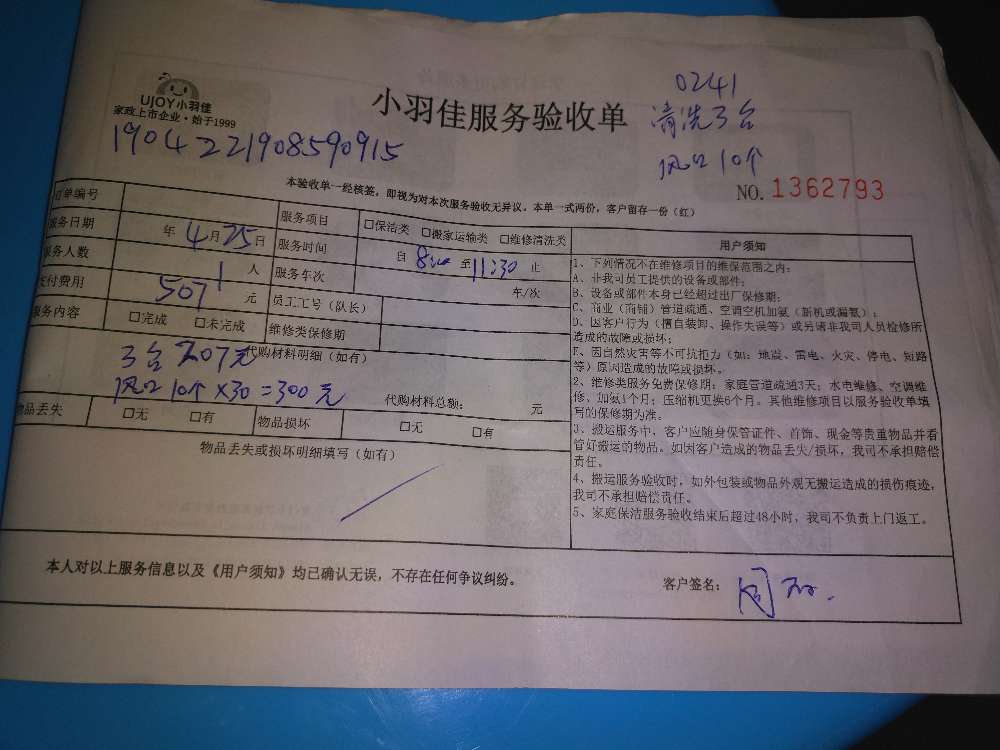 UJOY小羽佳
家政上市企业·始于1999
小羽佳服务验收单
0241
清洗3台
风口10个
190422190859 0915
NO. 1362793
本验收单一经核签，即视为对本次服务验收无异议。本单一式两份，客户留存一份（红）
订单编号
服务项目 □保洁类 □搬家运输类 □维修清洗类
服务日期 年4月25日
服务时间 自 8:00 至 11:30 止
服务人数 1 人
服务车次 年/次
支付费用 507 元
员工工号（队长）
服务内容 □完成 □未完成
维修类保修期
代购材料明细（如有）
3台 207元
风口10个×30=300元
代购材料总额： 元
物品丢失 □无 □有
物品损坏 □无 □有
物品丢失或损坏明细填写（如有）
用户须知
1、下列情况不在维修项目的维保范围之内：
A、非我司员工提供的设备或部件；
B、设备或部件本身已经超过出厂保修期；
C、商业（商铺）管道疏通、空调空机加氨（新机或漏氨）；
D、因客户行为（擅自装卸、操作失误等）或另请非我司人员检修所
造成的故障或损坏；
E、因自然灾害等不可抗拒力（如：地震、雷电、火灾、停电、短路
等）原因造成的故障或损坏。
2、维修类服务免费保修期：家庭管道疏通3天；水电维修、空调维
修、加氨1个月；压缩机更换6个月。其他维修项目以服务验收单填
写的保修期为准。
3、搬运服务中，客户应随身保管证件、首饰、现金等贵重物品并看
管好搬运的物品。如因客户造成的物品丢失/损坏，我司不承担赔偿
责任。
4、搬运服务验收时，如外包装或物品外观无搬运造成的损伤痕迹，
我司不承担赔偿责任。
5、家庭保洁服务验收结束后超过48小时，我司不负责上门返工。
本人对以上服务信息以及《用户须知》均已确认无误，不存在任何争议纠纷。
客户签名：